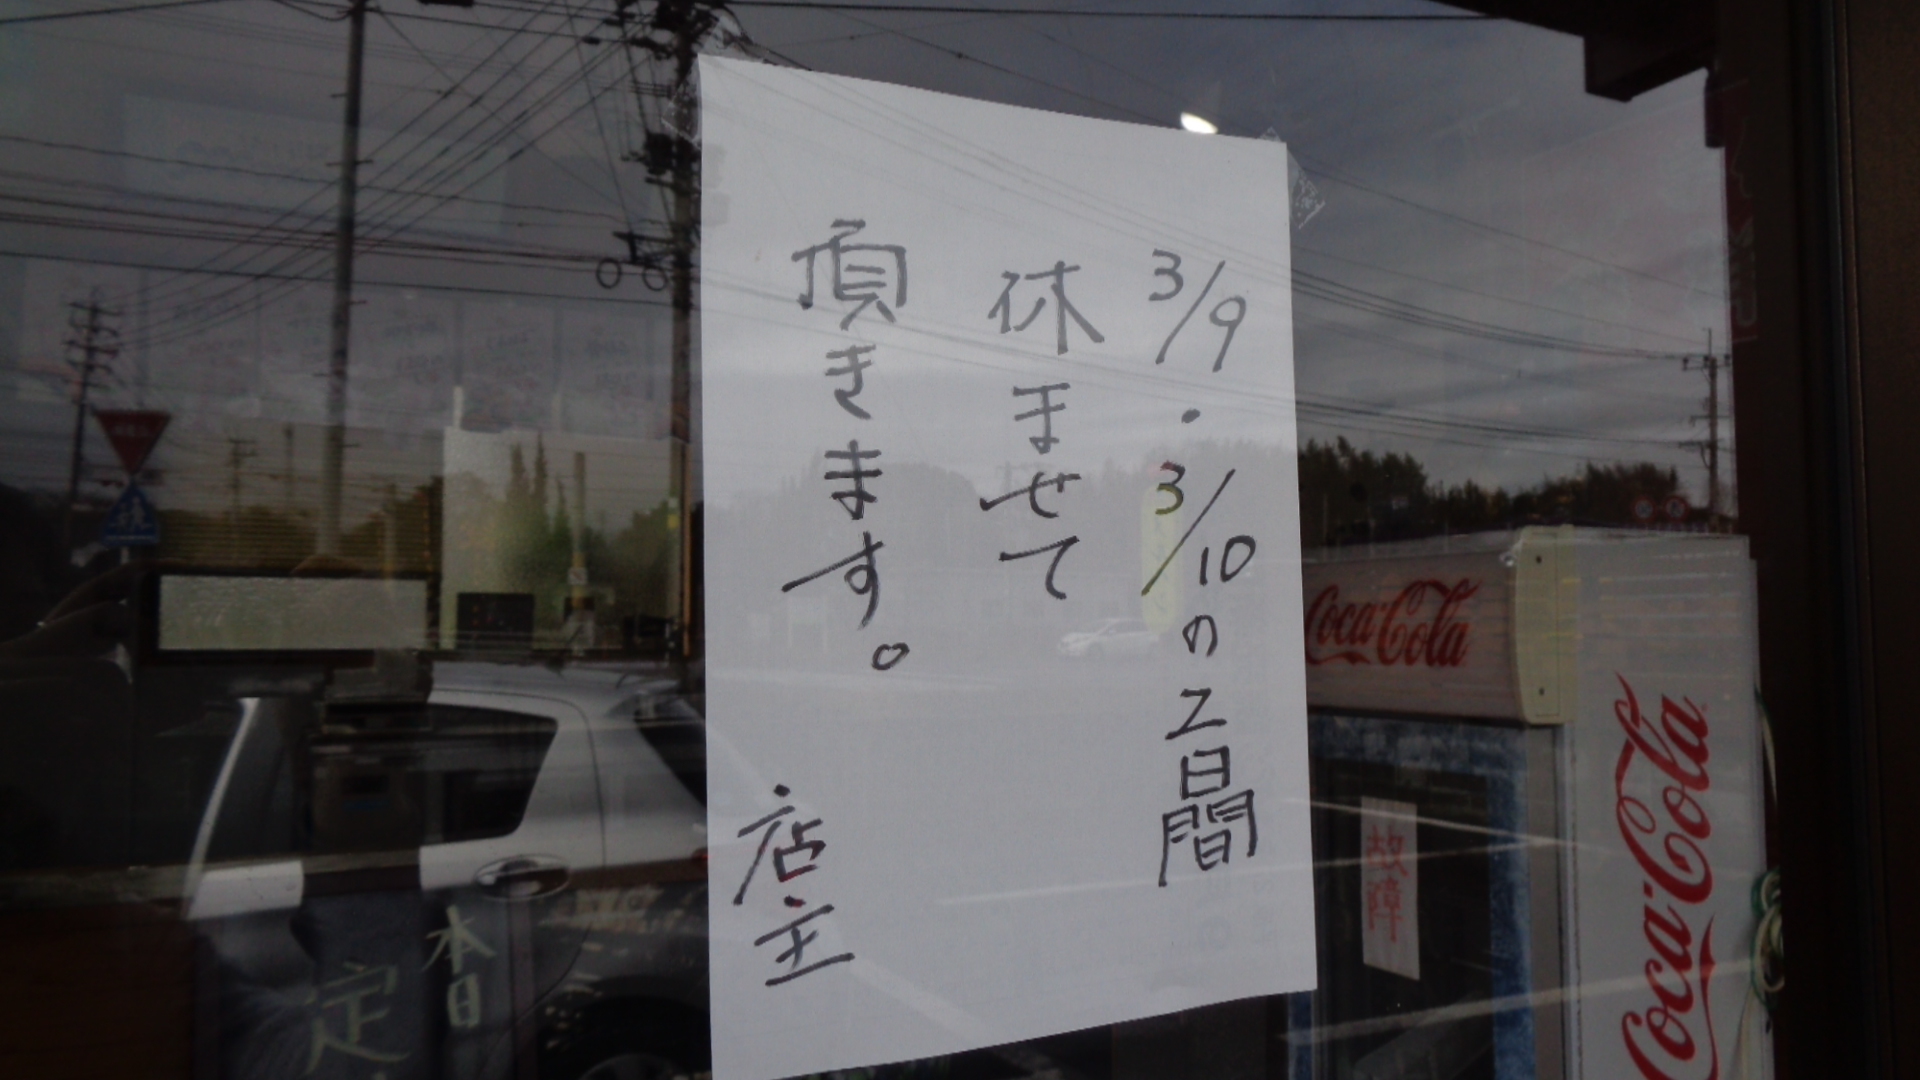 3/9・3/10の2日間
休ませて
頂きます。
店主
Coca-Cola
Coca-Cola
故障
本日
定